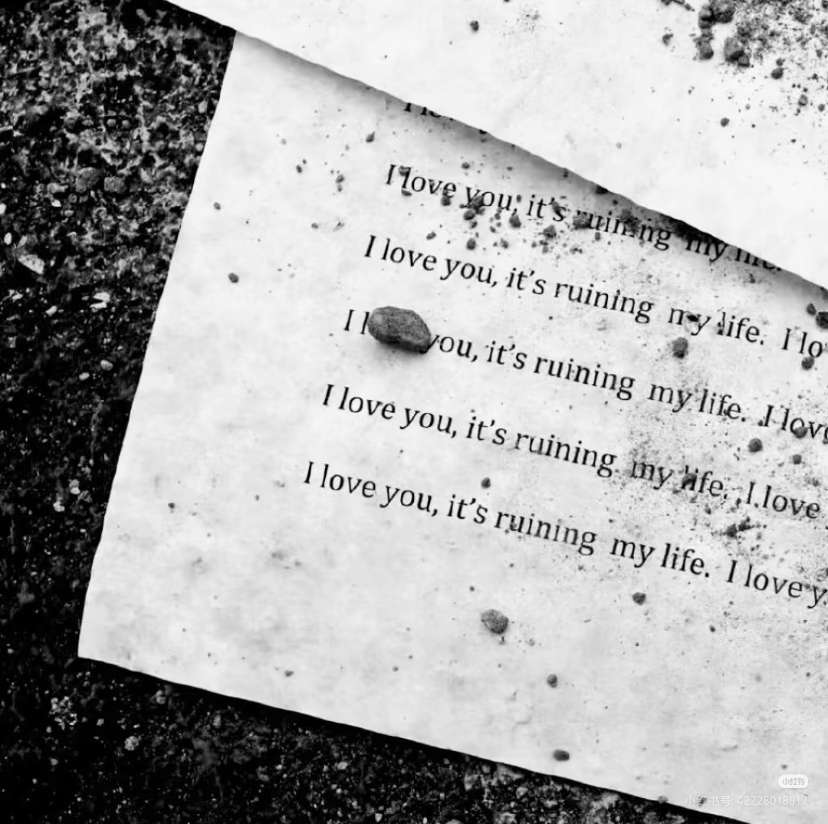 I love you, it's ruining my life.
I love you, it's ruining my life. I lo
I you, it's ruining my life. I love
I love you, it's ruining my life. I love
I love you, it's ruining my life. I love y
小红书